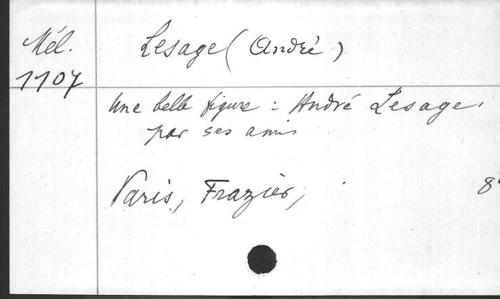 Mél.
1107
Lesage (André)
Une belle figure : André Lesage,
par ses amis
Paris, Frazier,
8°